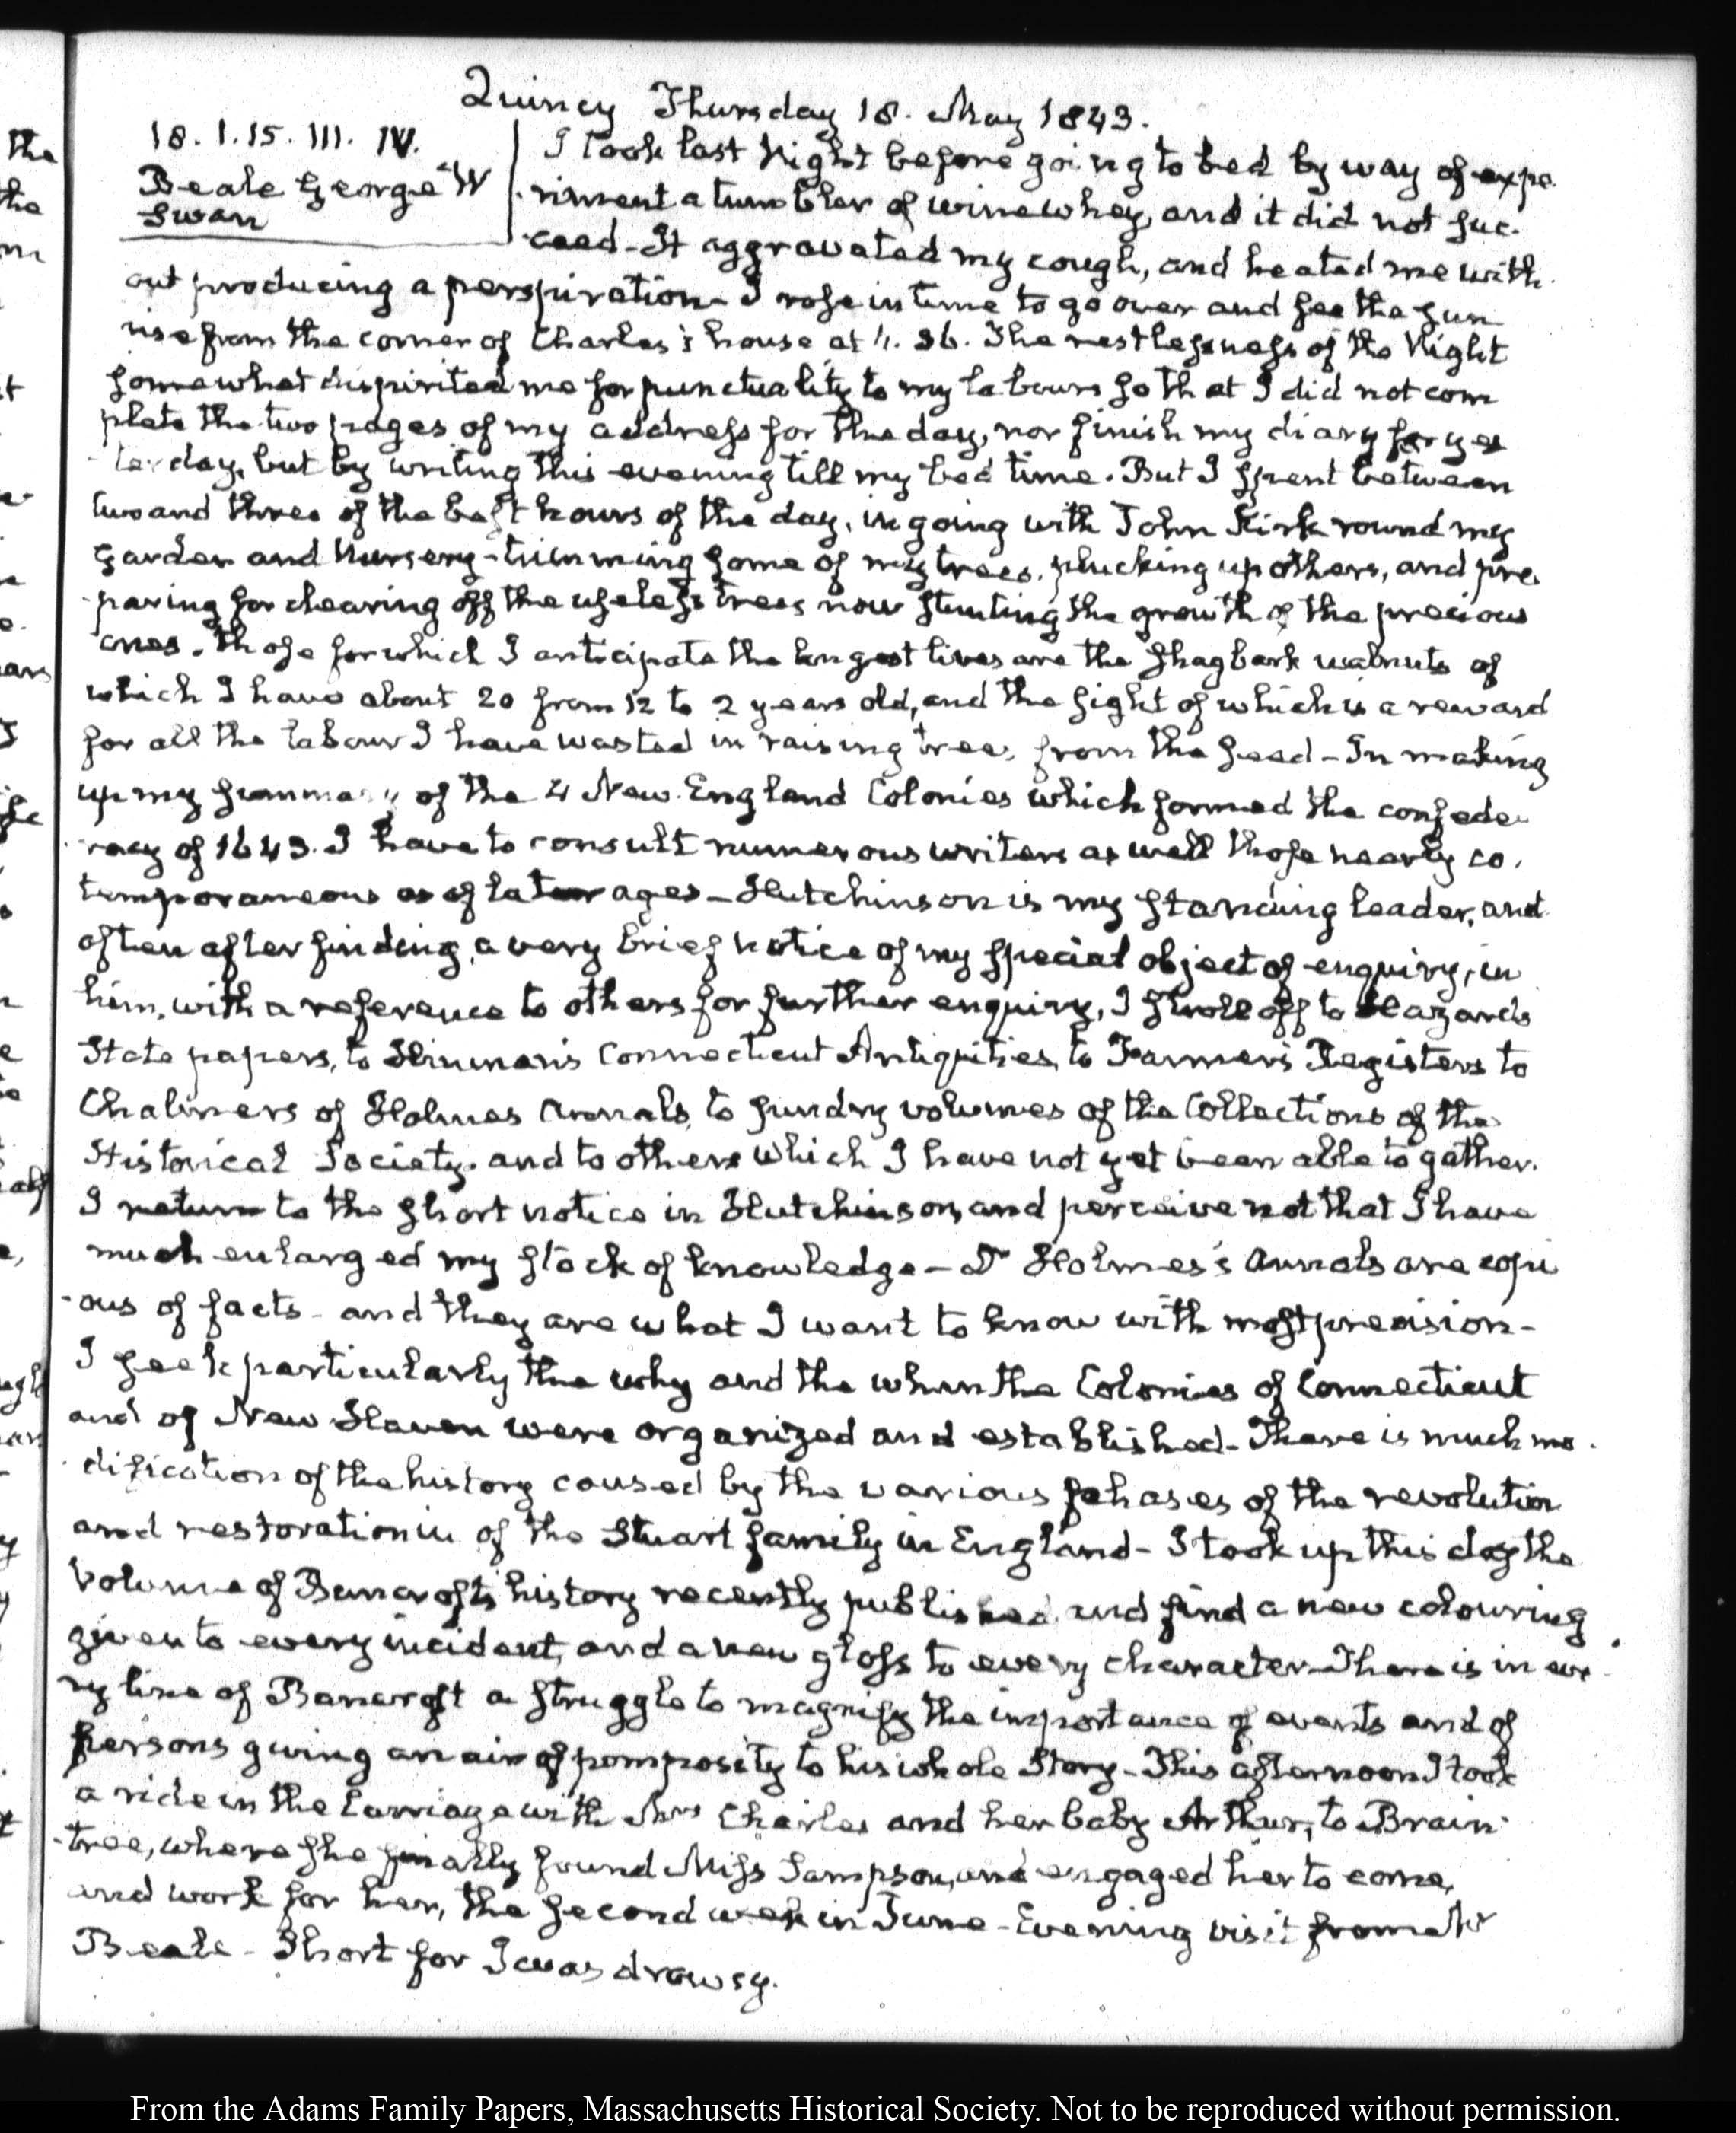 Quincy Thursday 18. May 1843.
18. 1. 15. III. IV.
Beale George W
Swan
I took last Night before going to bed by way of expe-
riment a tumbler of wine whey, and it did not suc-
ceed - It aggravated my cough, and heated me with-
out producing a perspiration - I rose in time to go over and see the sun
rise from the corner of Charles's house at 4. 36. The restlessness of the Night
somewhat dispirited me for punctuality to my labours so that I did not com
plete the two pages of my address for the day, nor finish my diary for yes
terday, but by writing this evening till my bed time. But I spent between
two and three of the best hours of the day, in going with John Kirk round my
garden and Nursery - trimming some of my trees, plucking up others, and pre-
paring for clearing off the useless trees now stunting the growth of the precious
ones. Those for which I anticipate the longest lives are the shagbark walnuts of
which I have about 20 from 12 to 2 years old, and the sight of which is a reward
for all the labour I have wasted in raising trees from the seed - In making
up my summary of the 4 New England Colonies which formed the confede-
racy of 1643. I have to consult numerous writers as well those nearly co-
temporaneous as of later ages - Hutchinson is my standing leader, and
often after finding, a very brief notice of my special object of enquiry, in
him, with a reference to others for further enquiry, I stroll off to Hazard's
State papers, to Hinman's Connecticut Antiquities, to Farmer's Registers to
Chalmers of Holmes Annals, to sundry volumes of the Collections of the
Historical Society, and to others which I have not yet been able to gather.
I return to the short notice in Hutchinson, and perceive not that I have
much enlarged my stock of knowledge - Dr Holmes's Annals are copi
-ous of facts - and they are what I want to know with most precision -
I seek particularly the why and the when the Colonies of Connecticut
and of New Haven were organized and established - There is much mo-
dification of the history caused by the various phases of the revolution
and restoration in of the Stuart family in England - I took up this day the
volume of Bancroft's history recently published and find a new colouring
given to every incident, and a new gloss to every character - There is in eve-
ry line of Bancroft a struggle to magnify the importance of events and of
persons giving an air of pomposity to his whole Story - This afternoon I took
a ride in the Carriage with Mrs Charles and her baby Arthur, to Brain-
tree, where she finally found Miss Sampson, and engaged her to come,
and work for her, the second week in June - Evening visit from Mr
Beale - Short for I was drowsy.
From the Adams Family Papers, Massachusetts Historical Society. Not to be reproduced without permission.